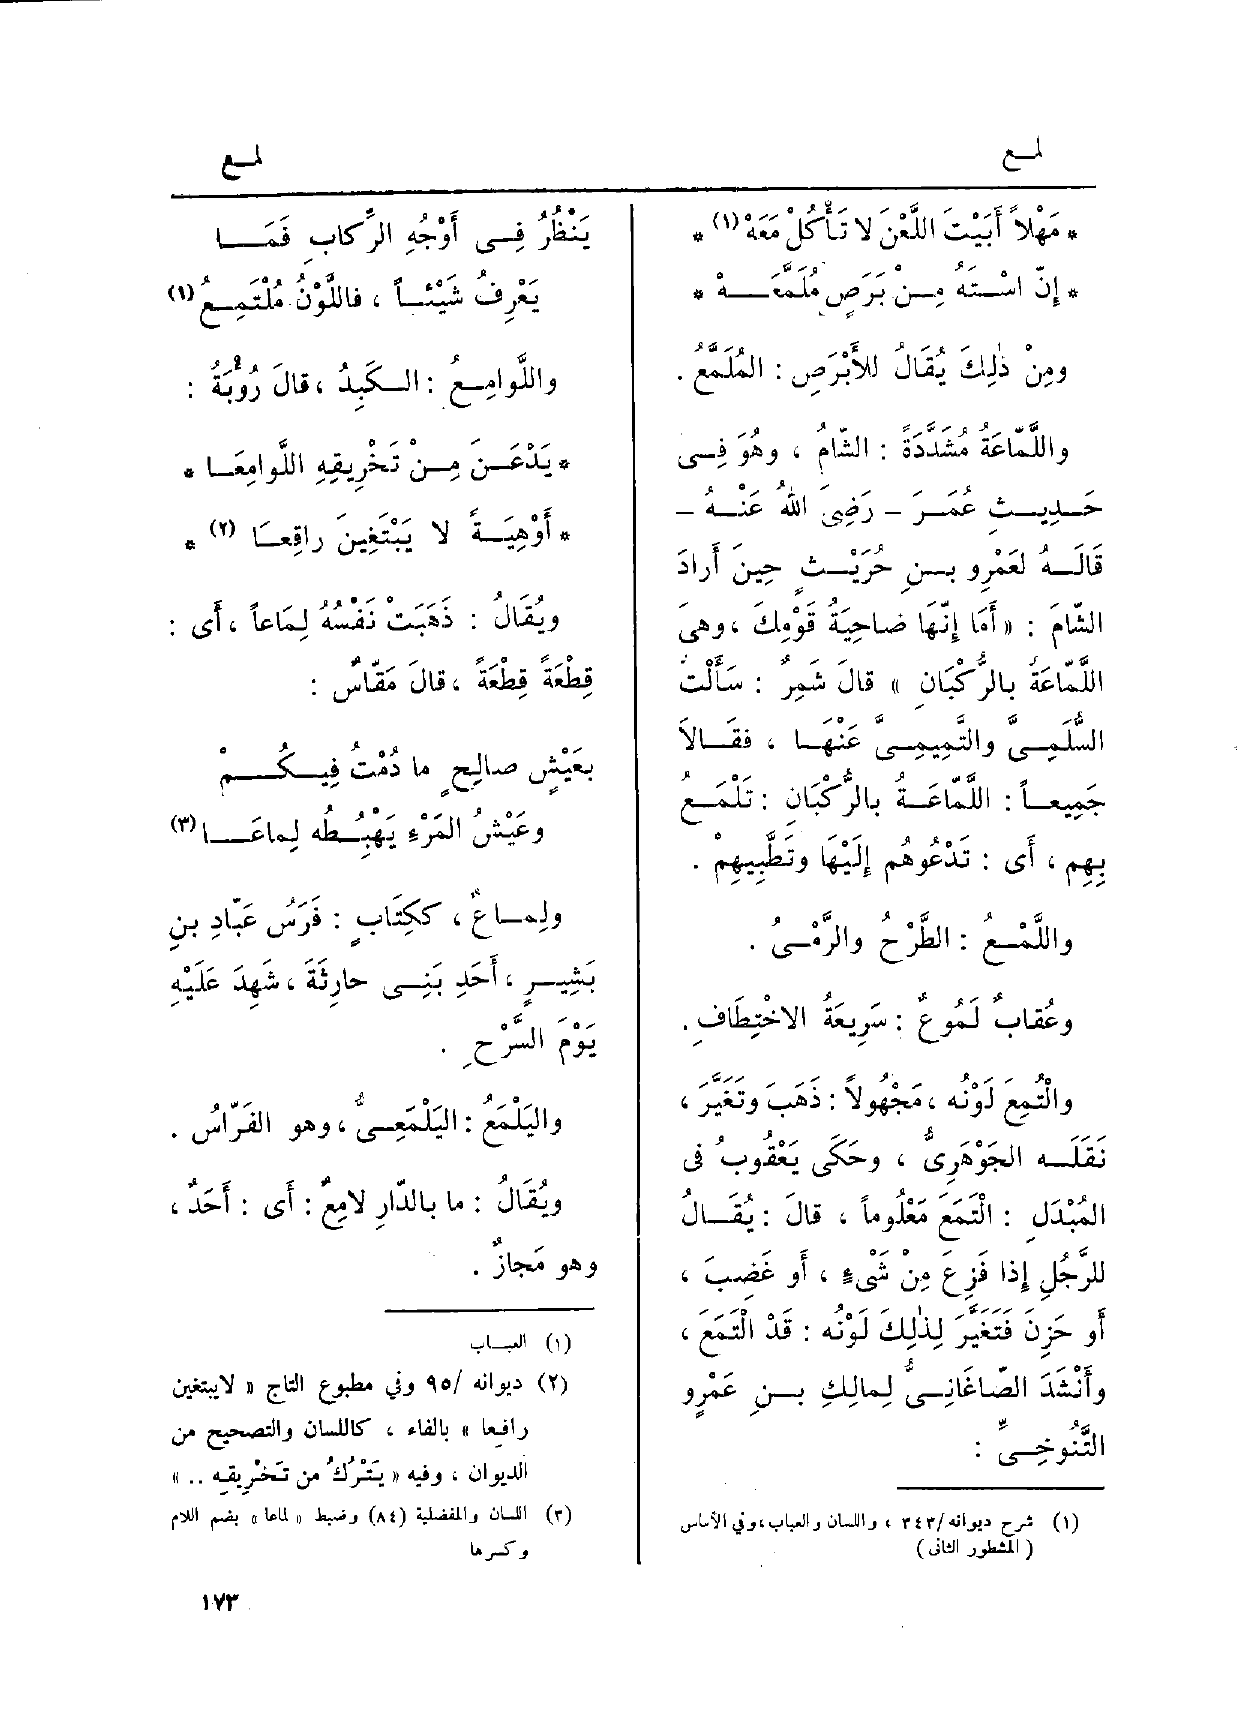 لمع
لمع
* مَهْلاً أَبَيْتَ اللَّعْنَ لا تَأْكُلْ مَعَهْ (١) *
* إِنّ اسْتَهُ مِنْ بَرَصٍ مُلَمَّعَهْ *
ومِنْ ذٰلِكَ يُقَالُ للأَبْرَصِ : المُلَمَّعُ .
واللَّمّاعَةُ مُشَدَّدَةً : الشّامُ ، وهُوَ فِى
حَدِيثِ عُمَرَ - رَضِىَ اللهُ عَنْهُ -
قَالَهُ لعَمْرِو بنِ حُرَيْثٍ حِينَ أَرادَ
الشّامَ : « أَمَا إِنَّهَا ضاحِيَةُ قَوْمِكَ ، وهىَ
اللَّمّاعَةُ بالرُّكْبَانِ » قالَ شَمِرٌ : سَأَلْتُ
السُّلَمِىَّ والتَّمِيمِىَّ عَنْهَا ، فقَالاَ
جَمِيعاً : اللَّمّاعَةُ بالرُّكْبَانِ : تَلْمَعُ
بِهِم ، أَى : تَدْعُوهُم إِلَيْهَا وتَطَّبِيهِمْ .
واللَّمْعُ : الطَّرْحُ والرَّمْىُ .
وعُقابٌ لَمُوعٌ : سَرِيعَةُ الاخْتِطَافِ .
والْتُمِعَ لَوْنُه ، مَجْهُولاً : ذَهَبَ وتَغَيَّرَ ،
نَقَلَه الجَوْهَرِىُّ ، وحَكَى يَعْقُوبُ فى
المُبْدَلِ : الْتَمَعَ مَعْلُوماً ، قالَ : يُقَالُ
للرَّجُلِ إِذا فَزِعَ مِنْ شَىْءٍ ، أَو غَضِبَ ،
أَو حَزِنَ فَتَغَيَّرَ لِذٰلِكَ لَوْنُه : قَدْ الْتَمَعَ ،
وأَنْشَدَ الصّاغانِىُّ لِمالِكِ بنِ عَمْرٍو
التَّنُوخِىِّ :
(١) شرح ديوانه/ ٣٤٣ ، واللسان والعباب ، وفي الأساس
( المشطور الثانى )
يَنْظُرُ فِى أَوْجُهِ الرِّكابِ فَمَا
يَعْرِفُ شَيْئاً ، فاللَّوْنُ مُلْتَمِعُ (١)
واللَّوامِعُ : الكَبِدُ ، قالَ رُؤْبَةُ :
* يَدْعَنَ مِنْ تَخْرِيقِهِ اللَّوامِعَا *
* أَوْهِيَةً لا يَبْتَغِينَ راقِعَا (٢) *
ويُقَالُ : ذَهَبَتْ نَفْسُهُ لِمَاعاً ، أَى :
قِطْعَةً قِطْعَةً ، قالَ مَقّاسٌ :
بعَيْشٍ صالِحٍ ما دُمْتُ فِيكُمْ
وعَيْشُ المَرْءِ يَهْبِطُه لِماعَا (٣)
ولِماعٌ ، ككِتَابٍ : فَرَسُ عَبّادِ بنِ
بَشِيرٍ ، أَحَدِ بَنِى حارِثَةَ ، شَهِدَ عَلَيْهِ
يَوْمَ السَّرْحِ .
واليَلْمَعُ : اليَلْمَعِىُّ ، وهو الفَرّاسُ .
ويُقَالُ : ما بالدّارِ لامِعٌ : أَى : أَحَدٌ ،
وهو مَجازٌ .
(١) العباب
(٢) ديوانه /٩٥ وفي مطبوع التاج « لايبتغين
رافعا » بالفاء ، كاللسان والتصحيح من
الديوان ، وفيه « يَتْرُكْنَ من تَخْرِيقِه .. »
(٣) اللسان والمفضلية (٨٤) وضبط « لماعا » بضم اللام
وكسرها
١٧٣